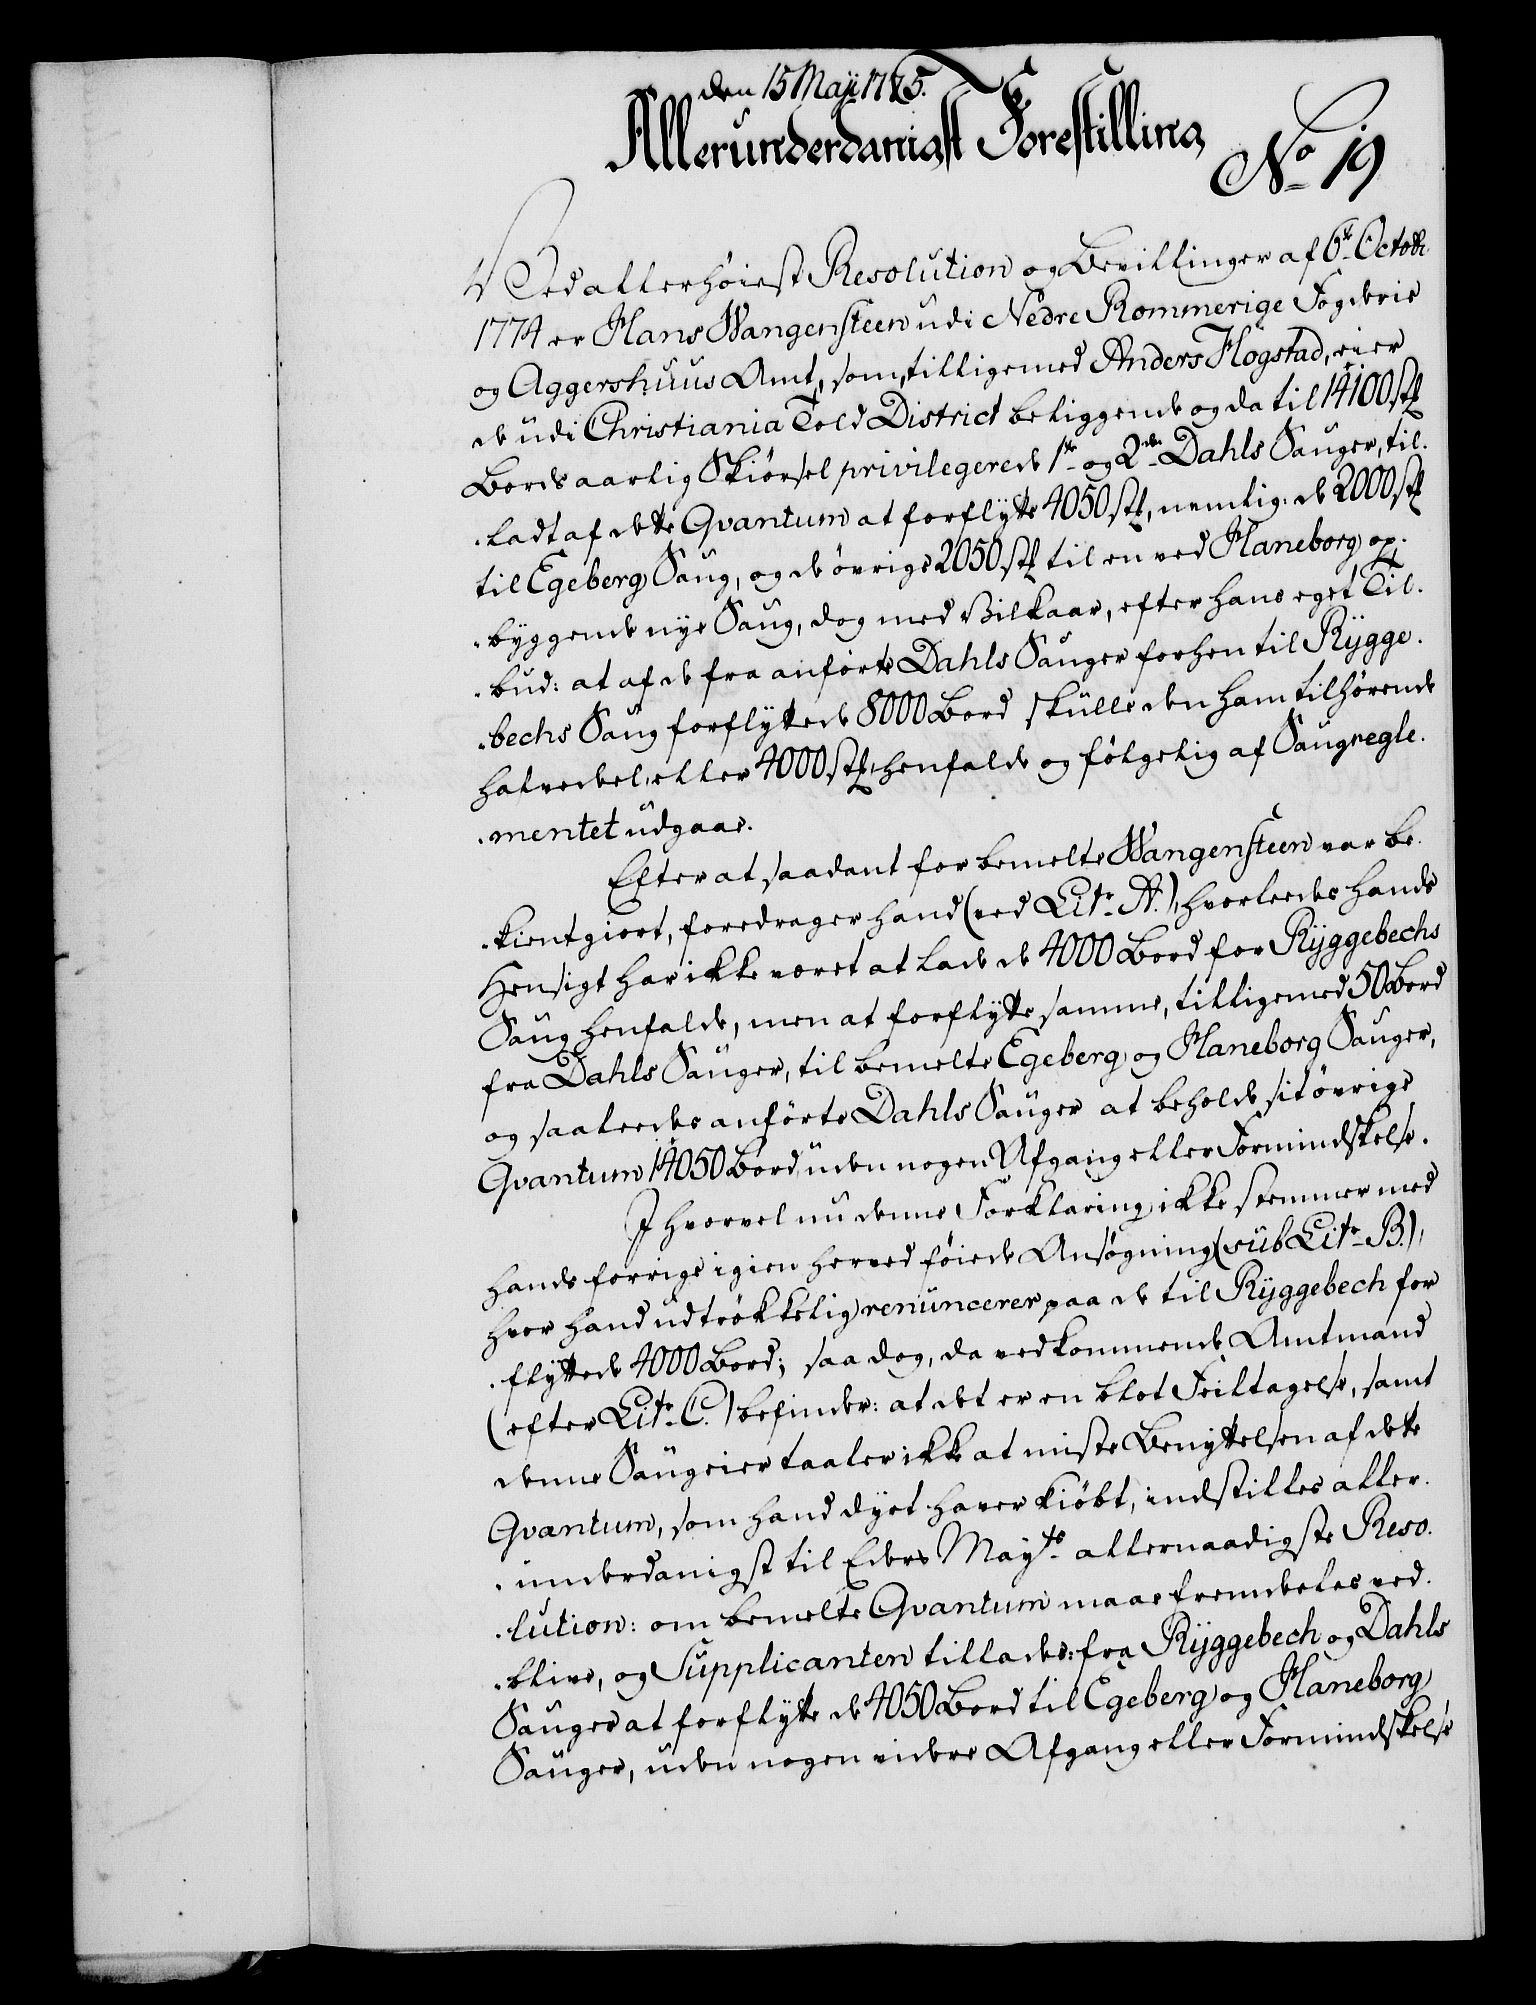 den 15 Maji 1775.
Allerunderdanigst Forestilling
No 19
Ved allerhöiest Resolution og Bevillinger af 6te Octobr
1774 er Hans Wangensteen udi Nedre Rommerige Fogderie
og Aggershuus Amt, som, tilligemed Anders Hogstad, eier
de udi Christiania Told District beliggende og da til 14100 stk
Bords aarlig Skiörsel privilegerede 1te og 2den Dahls Sauger, til-
-ladt af dette Qvantum at forflytte 4050 stk, nemlig: de 2000 stk
til Egeberg Saug, og de övrige 2050 stk til en ved Haneborg op-
-byggende nye Saug, dog med Vilkaar, efter hans eget Til-
-bud: at af de fra anförte Dahls Sauger forhen til Rygge-
-bechs Saug forflyttede 8000 Bord skulle den ham tilhörende
halvedel, eller 4000 stk, henfalde og fölgelig af Saugregle-
-mentet udgaae.
Efterat saadant for bemelte Wangensteen var be-
-kientgiort, foredrager hand (ved Litr. A.), hvorledes hands
Hensigt har ikke været at lade de 4000 Bord for Ryggebechs
Saug henfalde, men at forflytte samme, tilligemed 50 Bord
fra Dahls Sauger, til bemelte Egeberg og Haneborg Sauger,
og saaledes anförte Dahls Sauger at beholde sit övrige
Qvantum 14050 Bord uden nogen Afgang eller Formindskelse.
Ihvorvel nu denne Forklaring ikke stemmer med
hands forrige igien herved föiede Ansögning (sub Litr. B.),
hvor hand udtrökkelig renuncerer paa de til Ryggebech for
-flyttede 4000 Bord; saa dog, da vedkommende Amtmand
(efter Litr. C.) befinder: at det er en blot Feiltagelse, samt
denne Saugeier taaler ikke at miste Benyttelsen af dette
Qvantum, som hand dyrt haver kiöbt, indstilles aller-
-underdanigst til Eders Mayts allernaadigste Reso-
-lution: om bemelte Qvantum maae fremdeles ved-
-blive, og Supplicanten tillades: fra Ryggebech og Dahls
Sauger at forflytte de 4050 Bord til Egeberg og Haneborg
Sauger, uden nogen videre Afgang eller Formindskelse